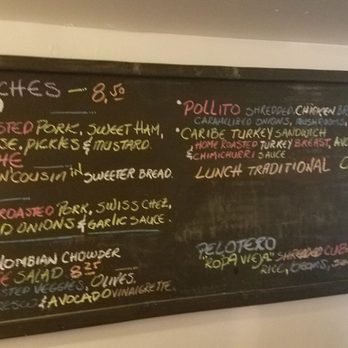 CHES — 8.50
STED PORK, SWEET HAM,
SE, PICKLES & MUSTARD.
HE
N COUSIN in SWEETER BREAD.
ROASTED PORK, SWISS CHEZ,
D ONIONS & GARLIC SAUCE.
LOMBIAN CHOWDER
E SALAD 8.25
STED VEGGIES, OLIVES,
RESCO & AVOCADO VINAIGRETTE.
• POLLITO SHREDDED CHICKEN BR
CARAMELIZED ONIONS, MUSHROOMS,
• CARIBE TURKEY SANDWICH
HOME ROASTED TURKEY BREAST, AVO
& CHIMICHURRI SAUCE
LUNCH TRADITIONAL C
PELOTERO
"ROPA VIEJA" SHREDDED CUB
RICE, BEANS,